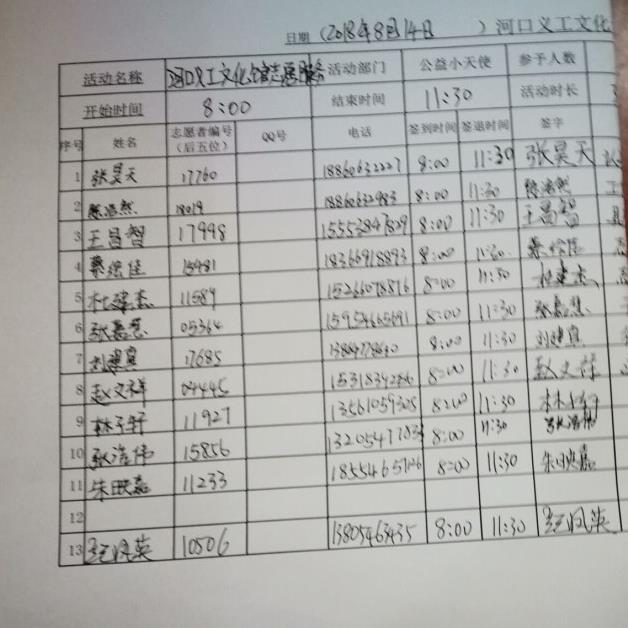 日期（2018年8月14日 ）河口义工文化
活动名称 河口义工文化馆志愿服务 活动部门 公益小天使 参予人数
开始时间 8:00 结束时间 11:30 活动时长
序号 姓名 志愿者编号（后五位） QQ号 电话 签到时间 签退时间 签字
1 张昊天 17760 18860632227 8:00 11:30 张昊天
2 陈浩然 18019 18860632983 8:00 11:30 陈浩然
3 王昌智 17998 15553847829 8:00 11:30 王昌智
4 蔡绘佳 15481 18366918893 8:00 11:30 蔡绘佳
5 杜建杰 11589 15266078876 8:00 11:30 杜建杰
6 张嘉慧 05364 15954665691 8:00 11:30 张嘉慧
7 刘建宾 17685 8:00 11:30 刘建宾
8 赵文祥 04445 8:00 11:30 赵文祥
9 林子轩 11927 13561059308 8:00 11:30
10 张浩伟 15856 8:00 11:30 张浩伟
11 朱映嘉 11233 8:00 11:30 朱映嘉
12
13 10506 8:00 11:30